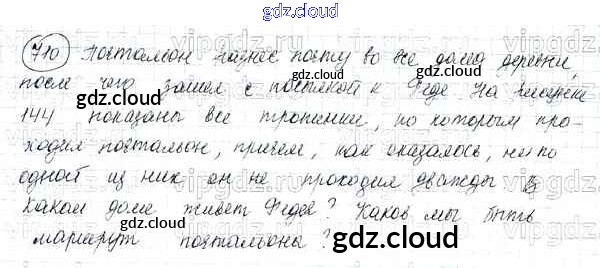 gdz.cloud
710 Почтальон разнес почту во все дома деревни,
после чего зашел с посылкой к Феде. На рисунке
144 показаны все тропинки, по которым про-
ходил почтальон, причем, как оказалось, ни по
одной из них он не проходил дважды. В
каком доме живет Федя? Каков мы быть
маршрут почтальона?
gdz.cloud
gdz.cloud
gdz.cloud
gdz.cloud
gdz.cloud
gdz.cloud
gdz.cloud